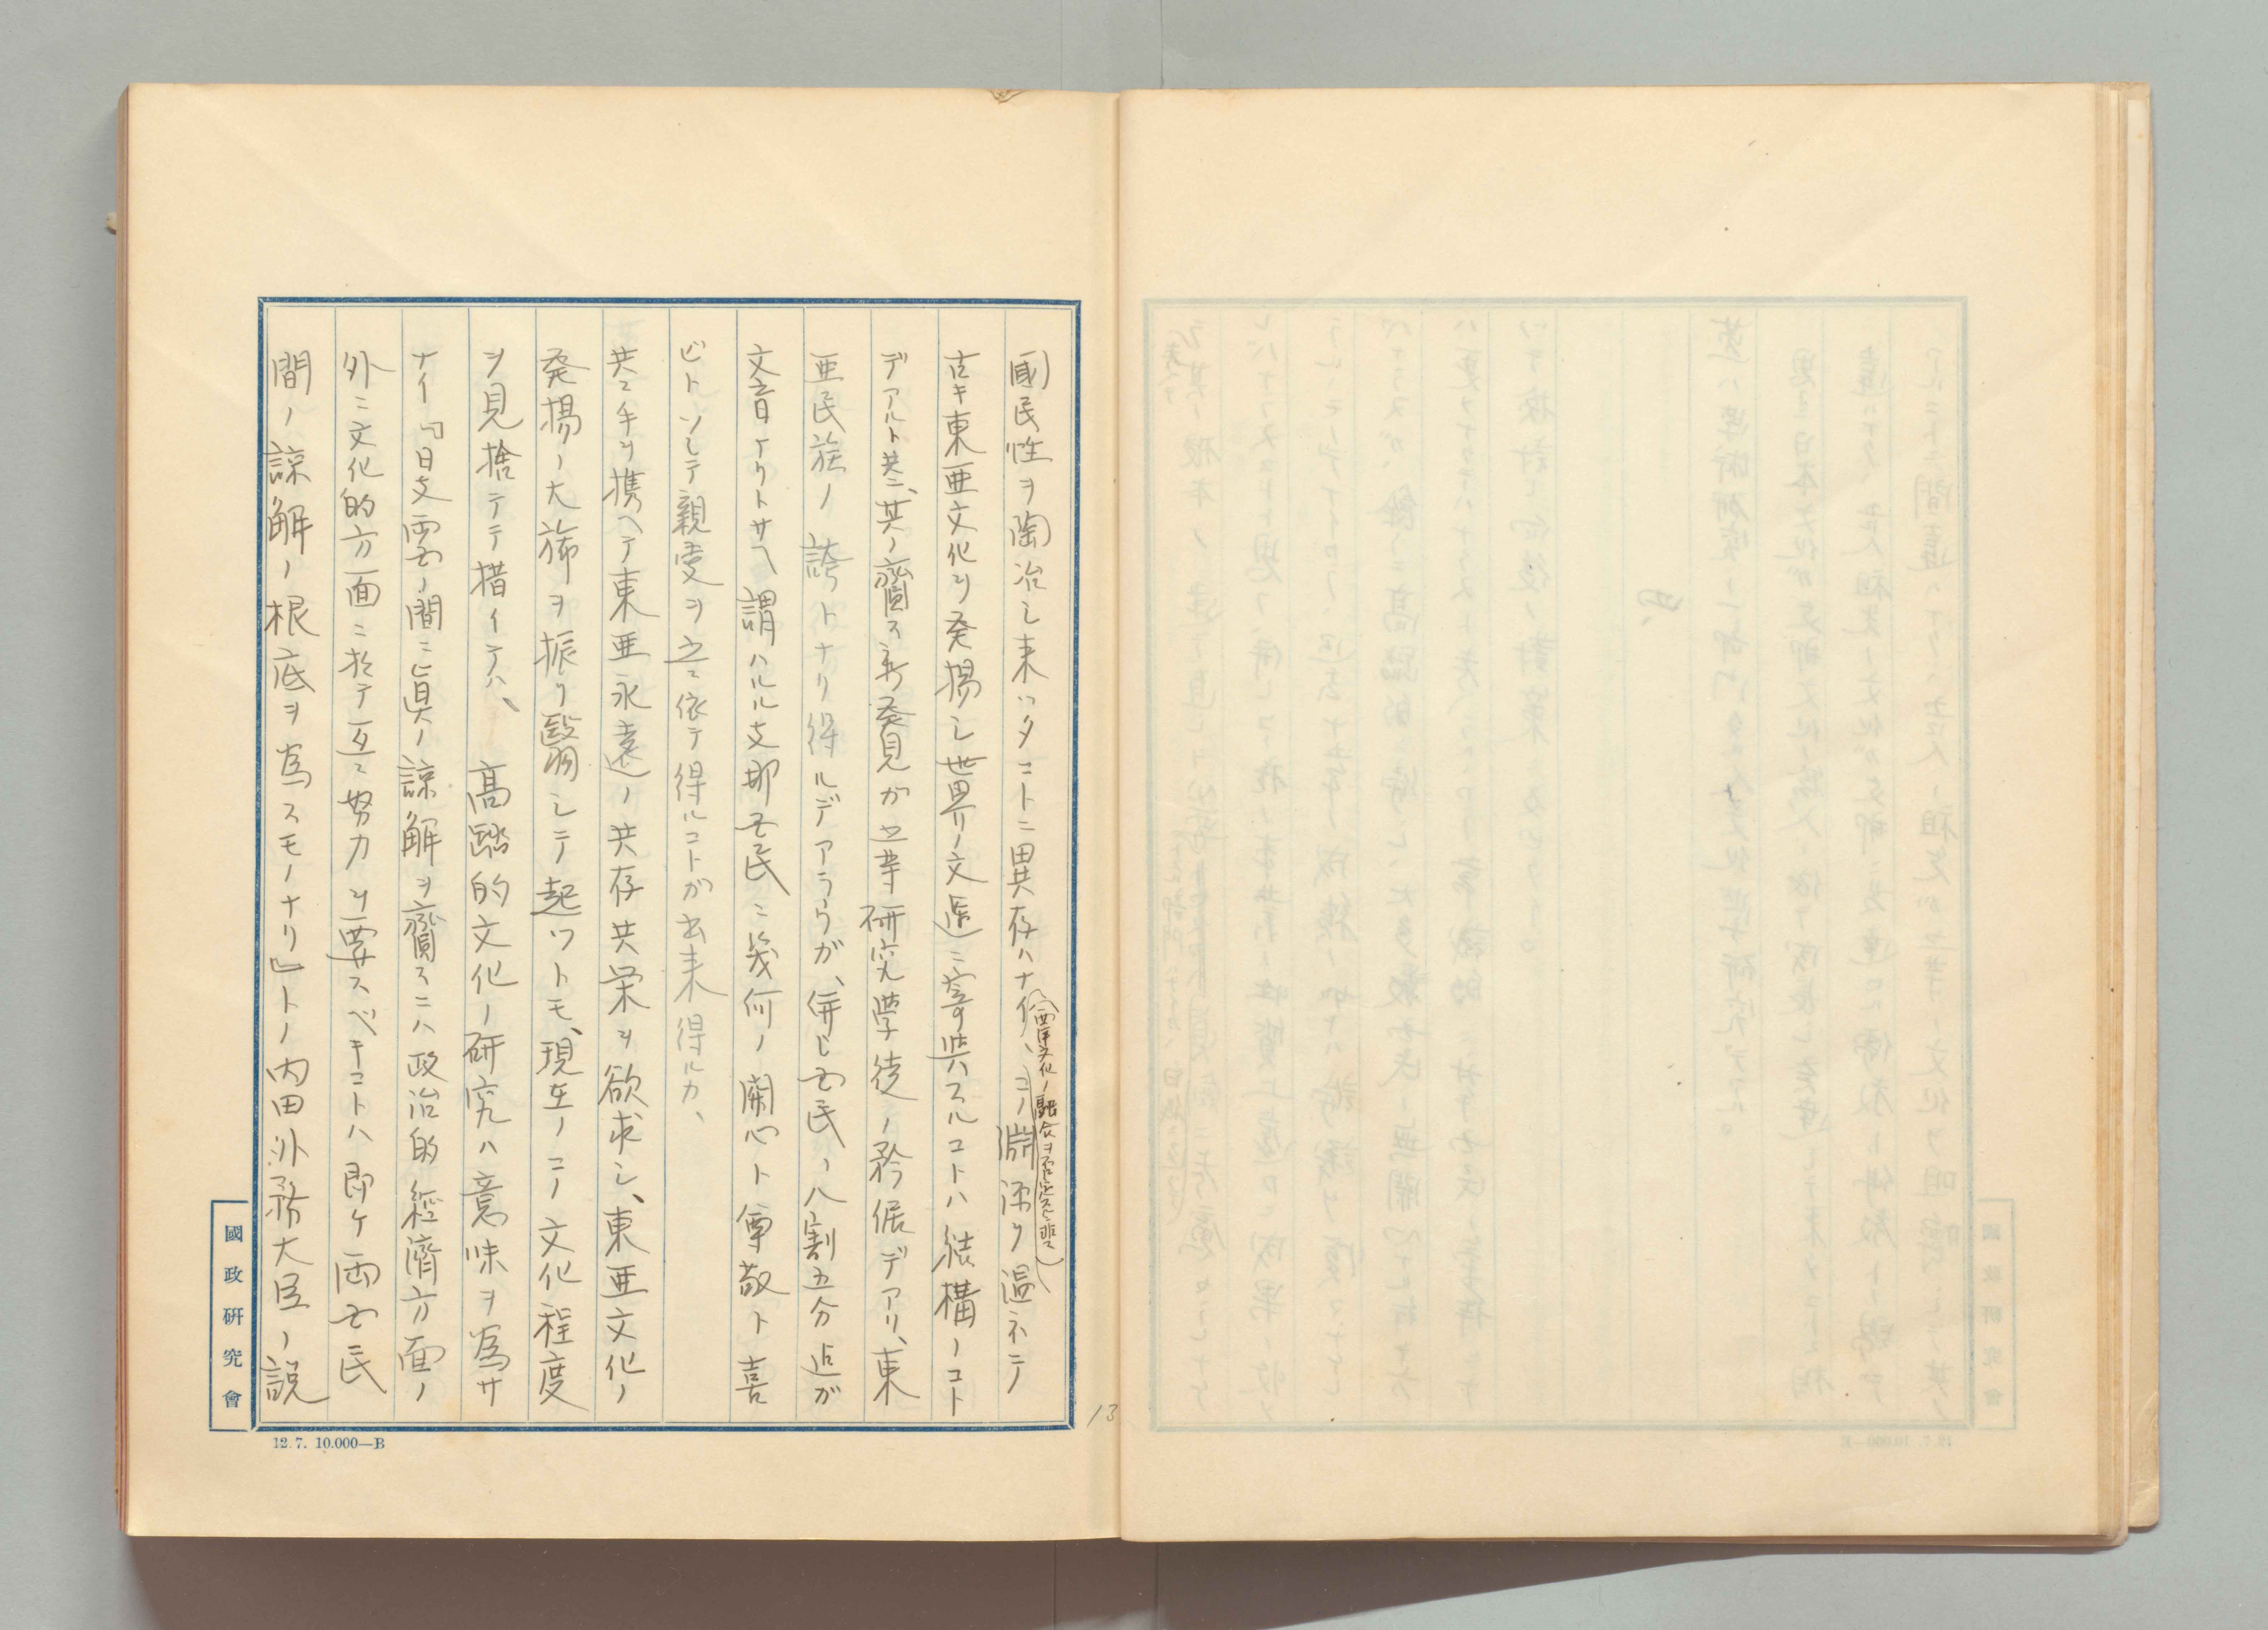 國民性ヲ陶冶シ来ッタコトニ異存ハナイ、コノ淵源ヲ温ネテ
(西洋文化ノ融合ヲ否定スルニ非ズ)
古キ東亜文化ヲ発揚シ世界ノ文運ニ寄與スルコトハ結構ノコト
デアルト共ニ、其ノ齎ス新発見ガ 研究學徒ノ矜 デアリ、東
亜民族ノ誇トナリ得ルデアラウガ、併シ國民ノ八割五分迄ガ
文盲 ト 謂ハルル支那國民ニ幾何ノ関心ト尊敬ト喜
ビトソシテ親愛ヲ之ニ依テ得ルコトガ出来得ルカ、
共ニ手ヲ携ヘテ東亜永遠ノ共存共栄ヲ欲求シ、東亜文化ノ
発揚ノ大旆ヲ振リ翳シテ起ツトモ、現在ノコノ文化程度
ヲ見捨テテ措イテハ、高踏的文化ノ研究ハ意味ヲ為サ
ナイ『日支両國ノ間ニ眞ノ諒解ヲ齎スニハ政治的經濟方面ノ
外ニ文化的方面ニ於テ互ニ努力ヲ要スベキコトハ即ケ両國民
間ノ諒解ノ根底ヲ為スモノナリ』トノ内田外務大臣ノ説
13
國政研究會
12.7. 10.000—B